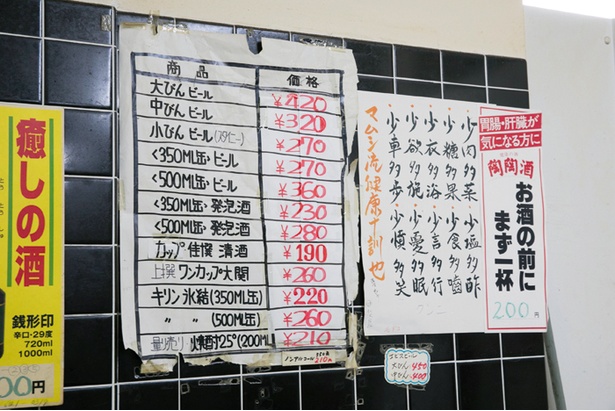 癒しの酒
銭形印
辛口・29度
720ml
1000ml
00円
商品 価格
大びん ビール ¥420
中びん ビール ¥320
小びん ビール(スタイニー) ¥270
<350ML缶>ビール ¥270
<500ML缶>ビール ¥360
<350ML缶>発泡酒 ¥230
<500ML缶>発泡酒 ¥280
カップ 佳撰 清酒 ¥190
上撰 ワンカップ大関 ¥260
キリン 氷結(350ML缶) ¥220
〃 〃 (500ML缶) ¥260
量売り 焼酎25°(200ML) ¥210
ノンアルコール 350缶 210円
少肉多菜 少塩多酢
少糖多果 少食多噛
少衣多浴 少言多行
少欲多施 少憂多眠
少車多歩 少憤多笑
マムシ流健康十訓也
胃腸・肝臓が
気になる方に
陶陶酒
お酒の前に
まず一杯
200円
大びん 450
中びん 400